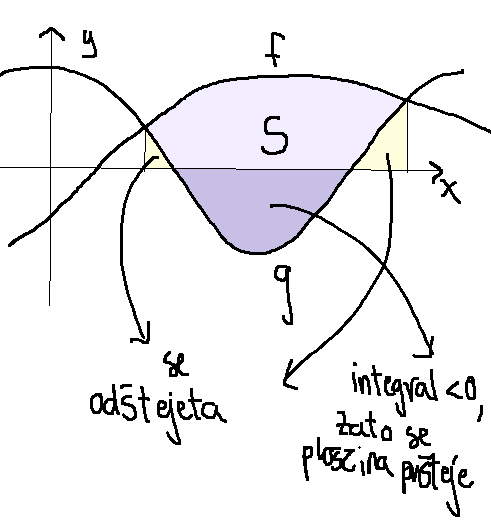 y
f
S
x
g
se
odštejeta
integral <0,
zato se
ploščina prišteje